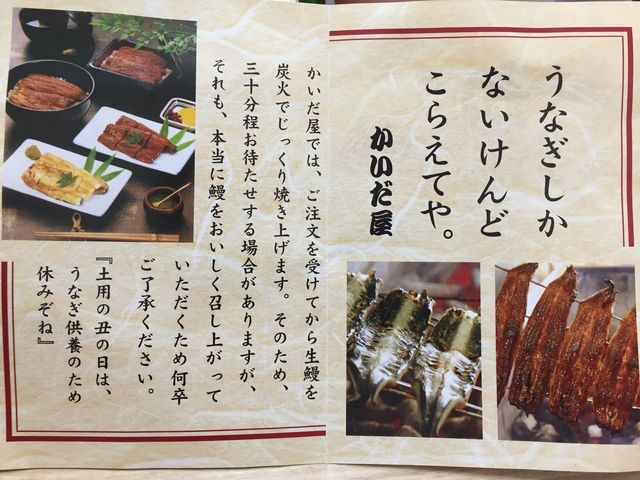 うなぎしか
ないけんど
こらえてや。
かいだ屋
かいだ屋では、ご注文を受けてから生鰻を
炭火でじっくり焼き上げます。そのため、
三十分程お待たせする場合がありますが、
それも、本当に鰻をおいしく召し上がって
いただくため何卒
ご了承ください。
『土用の丑の日は、
うなぎ供養のため
休みぞね』